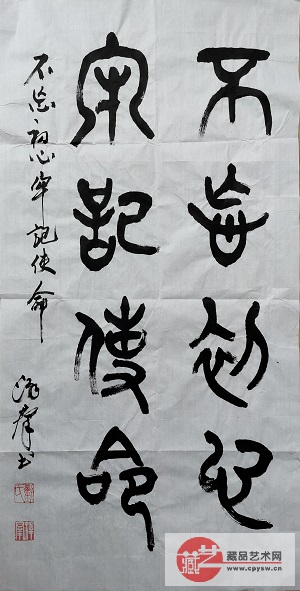 不忘初心
牢记使命
不忘初心牢記使命
书
藏品艺术网
www.cpysw.cn